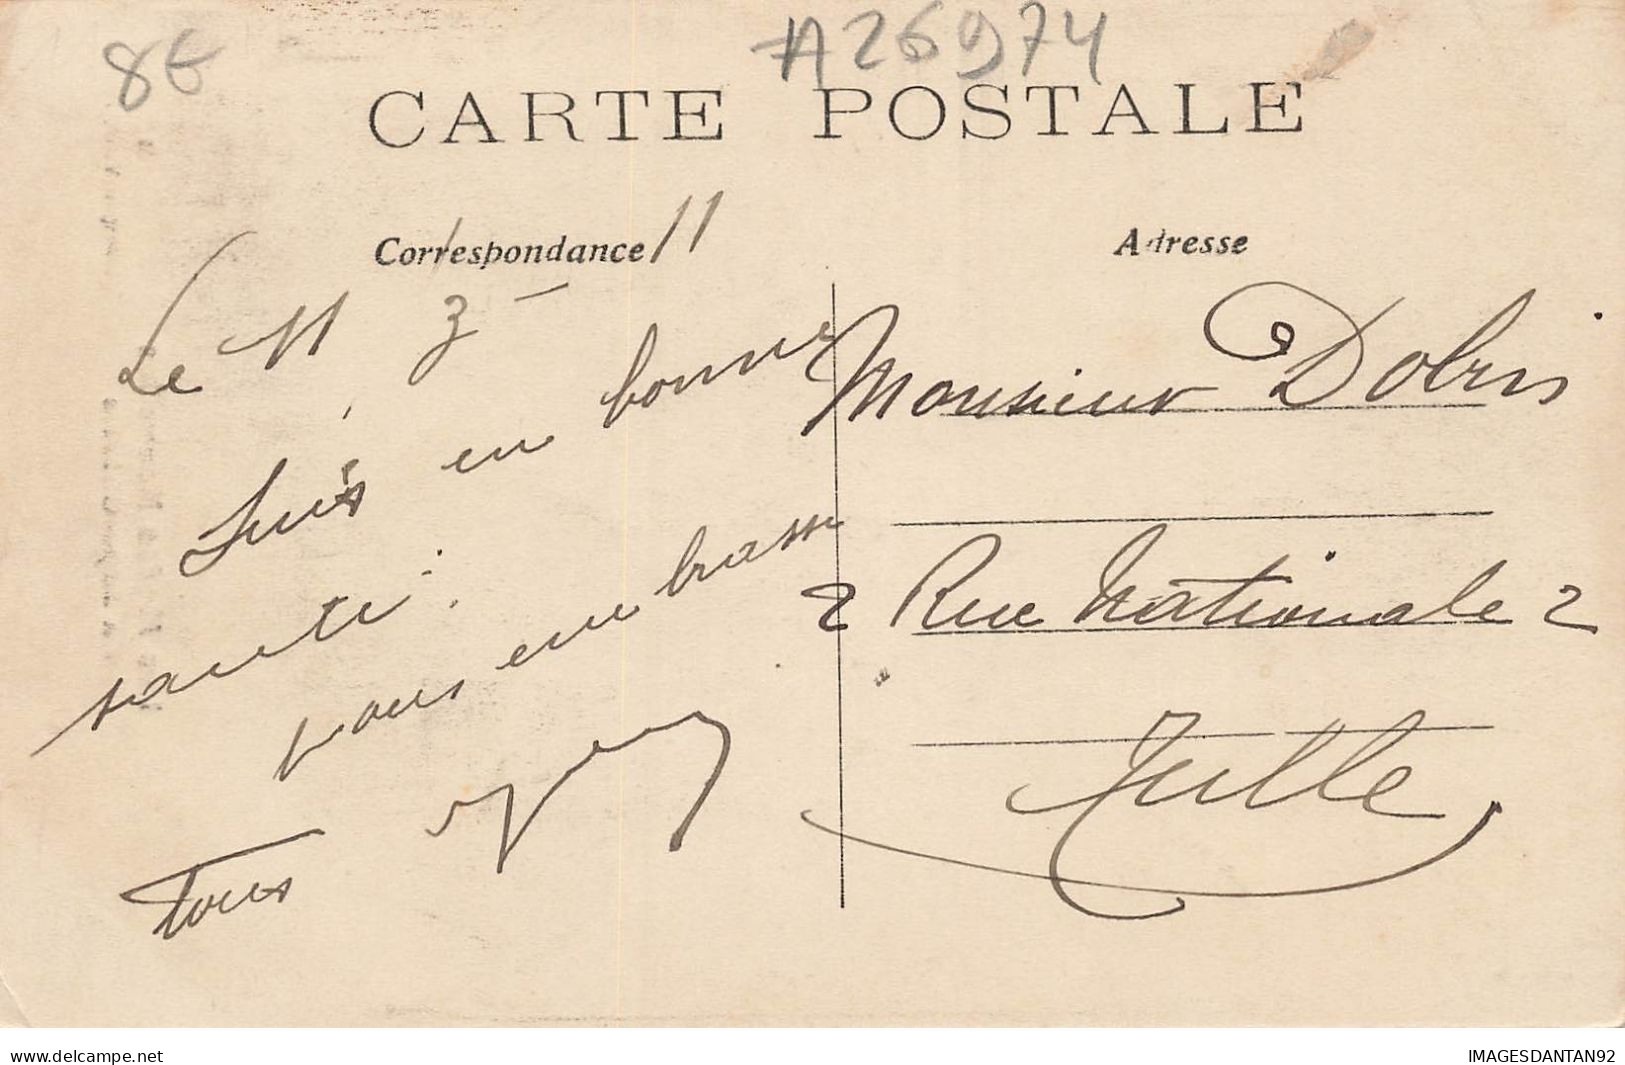 8€
#A26974
CARTE POSTALE
Correspondance
Adresse
Le 11 3 - 11
Suis en bonne
santé.
vous embrasse
Tous
Monsieur Dobris
2 Rue Nationale 2
Tulle
delcampe.net
IMAGESDANTAN92